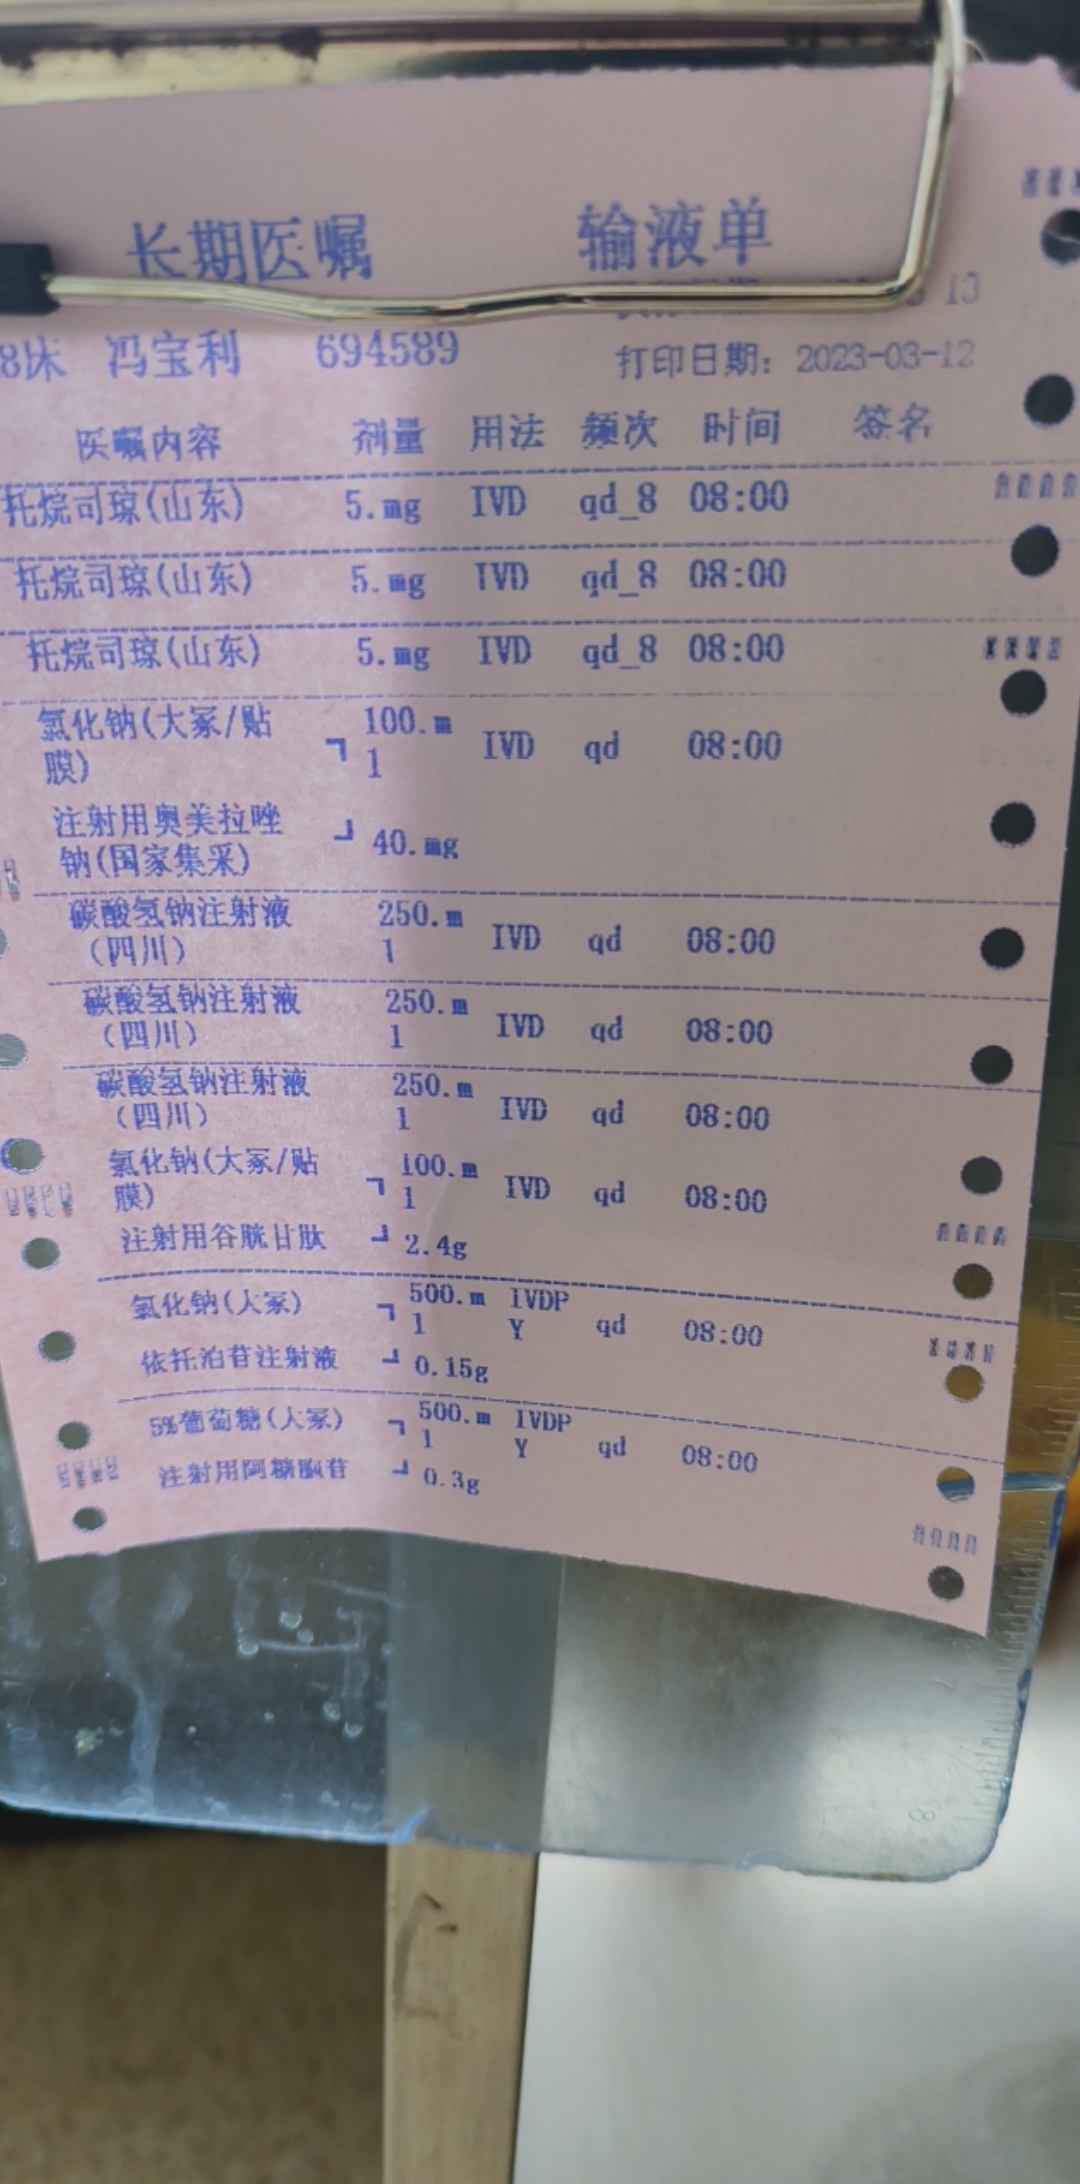 长期医嘱 输液单
13
8床 冯宝利 694589 打印日期: 2023-03-12
医嘱内容 剂量 用法 频次 时间 签名
托烷司琼(山东) 5.mg IVD qd_8 08:00
托烷司琼(山东) 5.mg IVD qd_8 08:00
托烷司琼(山东) 5.mg IVD qd_8 08:00
氯化钠(大冢/贴 ┐ 100.m IVD qd 08:00
膜) 1
注射用奥美拉唑 ┘ 40.mg
钠(国家集采)
碳酸氢钠注射液 250.m IVD qd 08:00
(四川) 1
碳酸氢钠注射液 250.m IVD qd 08:00
(四川) 1
碳酸氢钠注射液 250.m IVD qd 08:00
(四川) 1
氯化钠(大冢/贴 ┐ 100.m IVD qd 08:00
膜) 1
注射用谷胱甘肽 ┘ 2.4g
氯化钠(大冢) ┐ 500.m IVDP qd 08:00
1 Y
依托泊苷注射液 ┘ 0.15g
5%葡萄糖(大冢) ┐ 500.m IVDP qd 08:00
1 Y
注射用阿糖胞苷 ┘ 0.3g